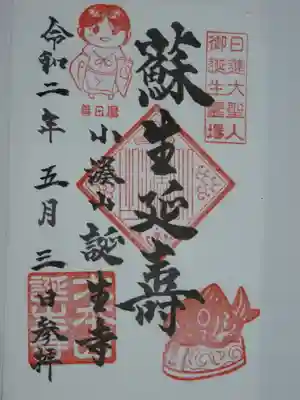 日蓮大聖人
御誕生霊場
蘇生延壽
小湊山 誕生寺
令和二年五月三日参拝